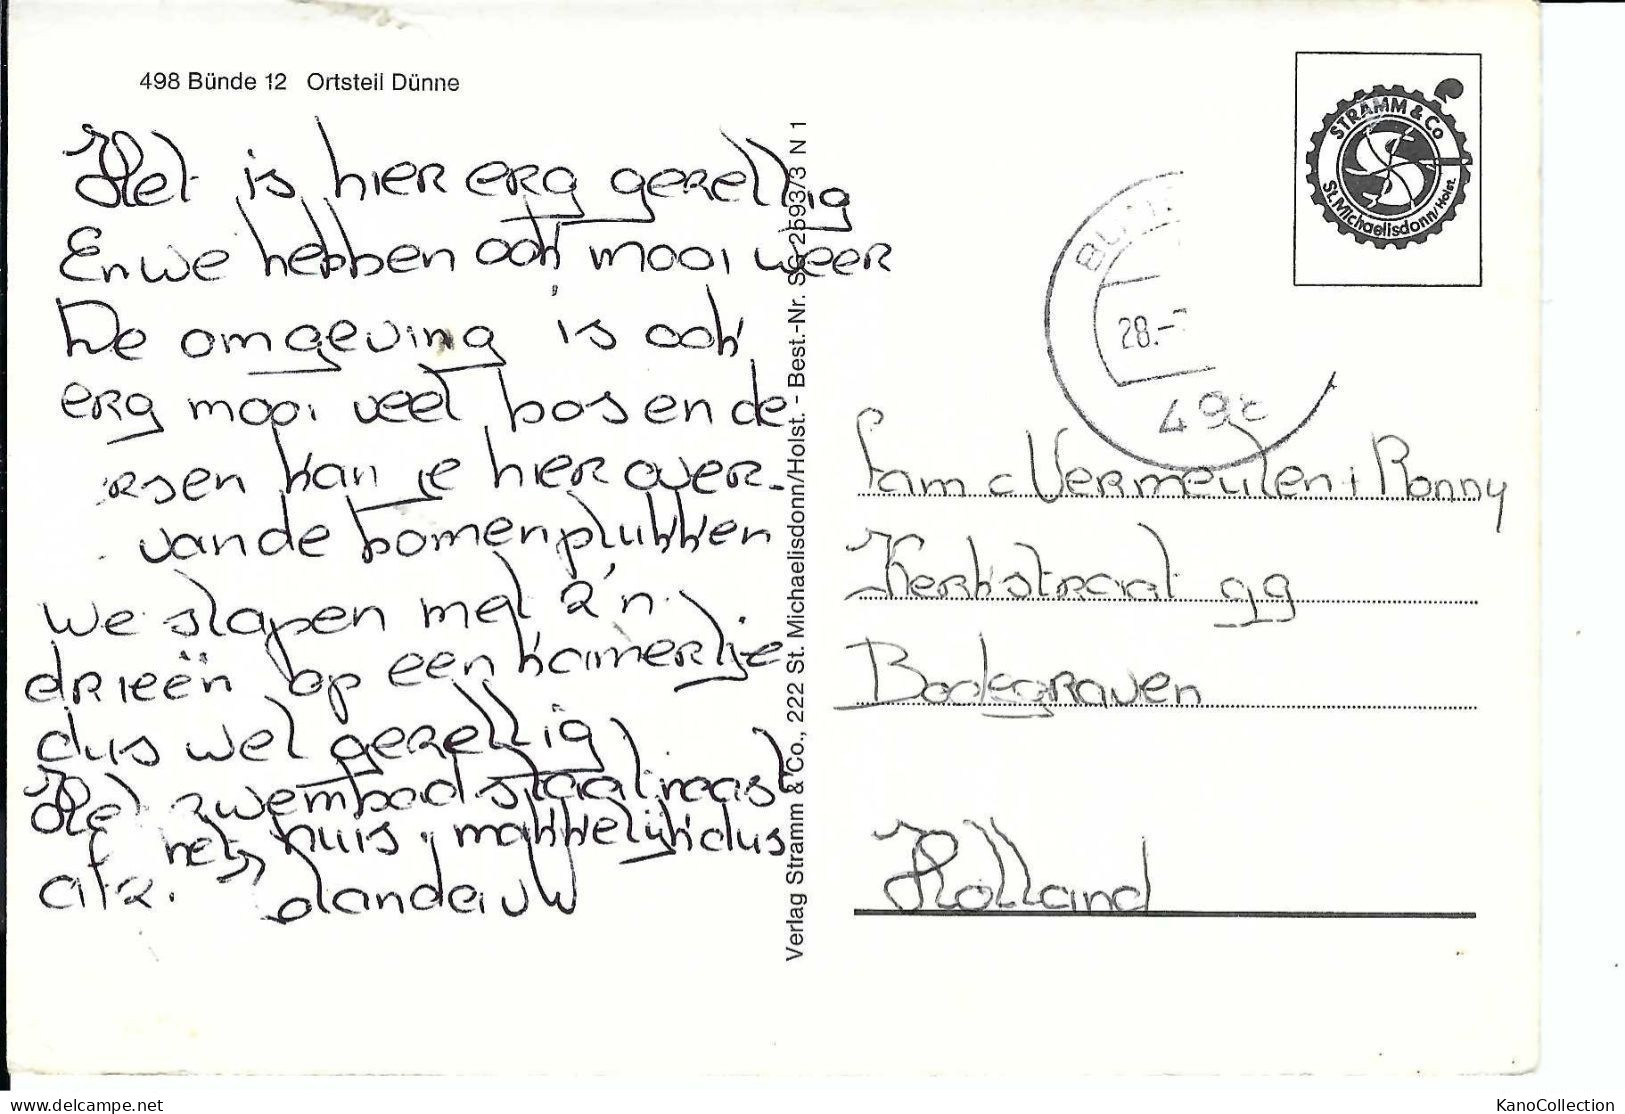 498 Bünde 12 Ortsteil Dünne
Het is hier erg gezellig
En we hebben ook mooi weer
De omgeving is ook
erg mooi veel bos en de
ersen kan je hier over
van de bomen plukken
we slapen met z'n
drieën op een kamertje
dus wel gezellig
Het zwembad staat naast
het huis. makkelijk dus
afz.
Verlag Stramm & Co., 222 St. Michaelisdonn/Holst. - Best.-Nr. SG 2593/3 N 1
STRAMM & Co
St. Michaelisdonn/Holst.
28.-
Fam C Vermeulen + Ronny
Kerkstraat 99
Bodegraven
Holland
www.delcampe.net
KanoCollection